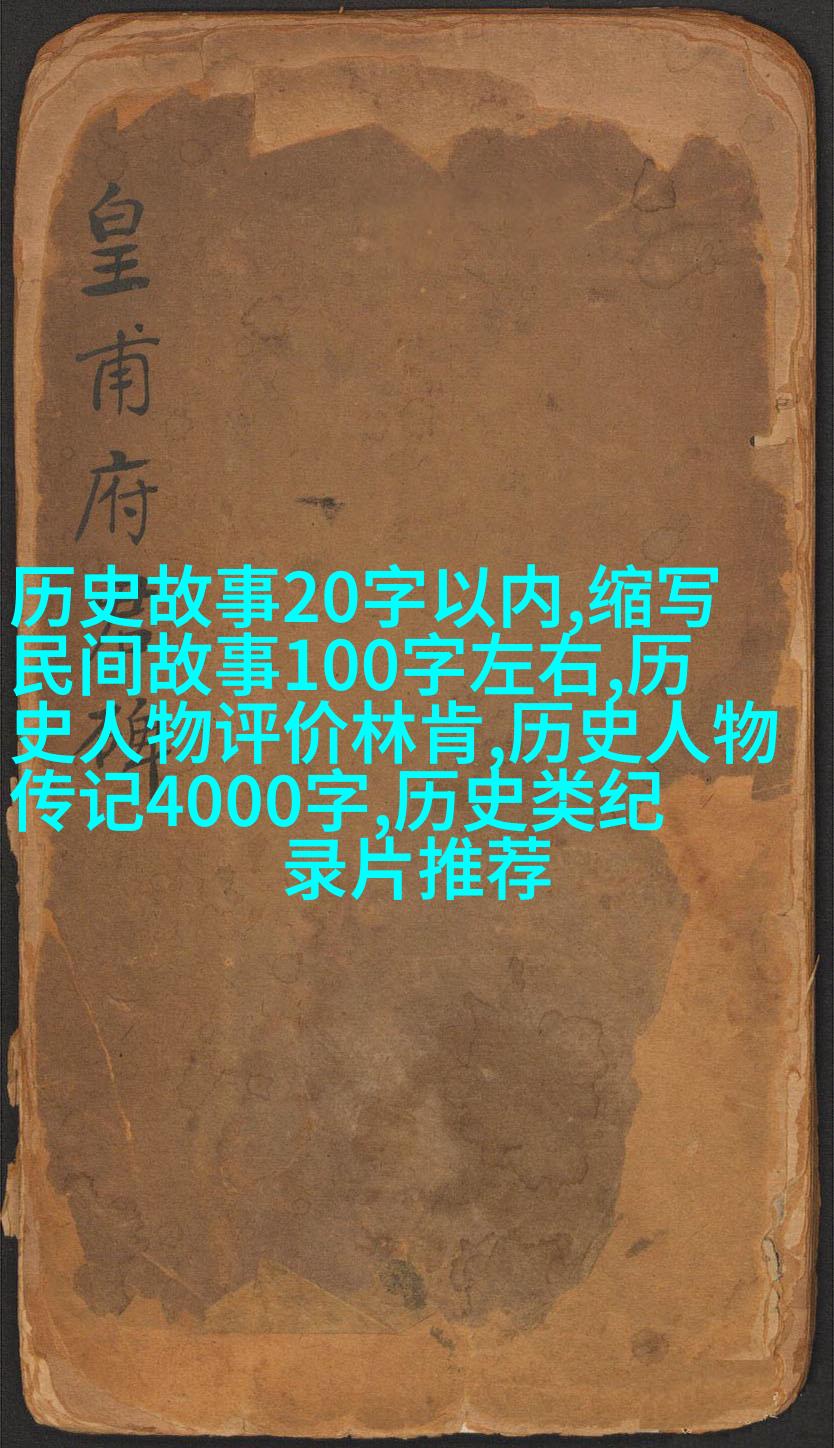 皇甫府君碑
历史故事20字以内,缩写
民间故事100字左右,历
史人物评价林肯,历史人物
传记4000字,历史类纪
录片推荐